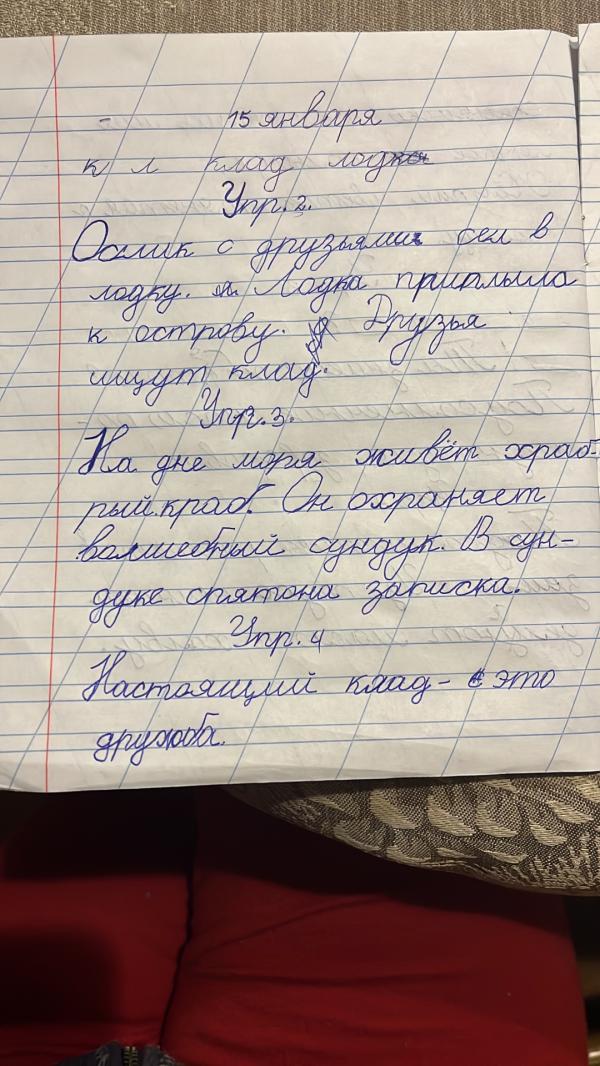 15 января
к л клад лодка
Упр. 2.
Ослик с друзьями сел в
лодку. Лодка приплыла
к острову. Друзья
ищут клад.
Упр. 3.
На дне моря живёт храб-
рый краб. Он охраняет
волшебный сундук. В сун-
дуке спятона записка.
Упр. 4
Настоящий клад - это
дружба.